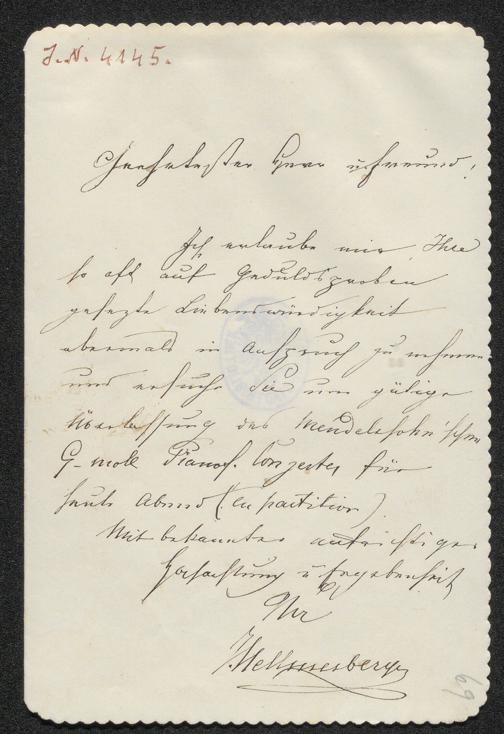 J. N. 4145.
Geehrtester Herr u Freund!
Ich erlaube mir, Ihre
so oft auf Geduldsproben
gesezte Liebenswürdigkeit
abermals in Anspruch zu nehmen
und ersuche Sie um gütige
Überlassung des Mendelssohn'schen
G-moll Pianof. Conzertes für
heute Abend (en partition)
Mit bekannter aufrichtiger
Hochachtung u Ergebenheit
Ihr
J Hellmesberger
69